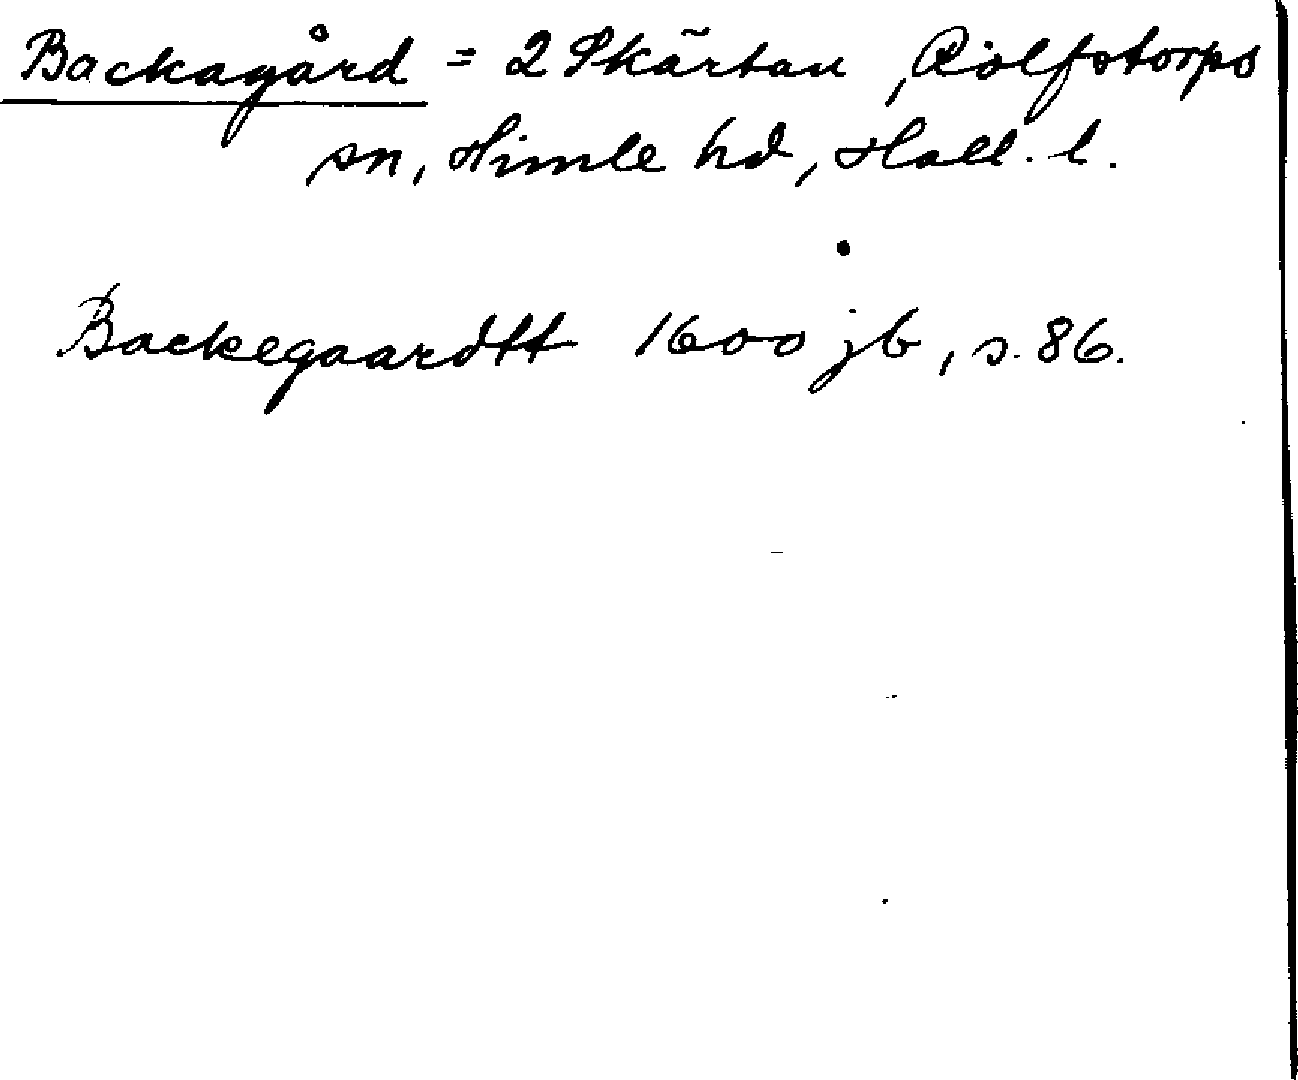 Backagård = 2 Skärtan, Rolfstorps
sn, Himle hd, Hall. l.
Backegaardtt 1600 jb, s. 86.